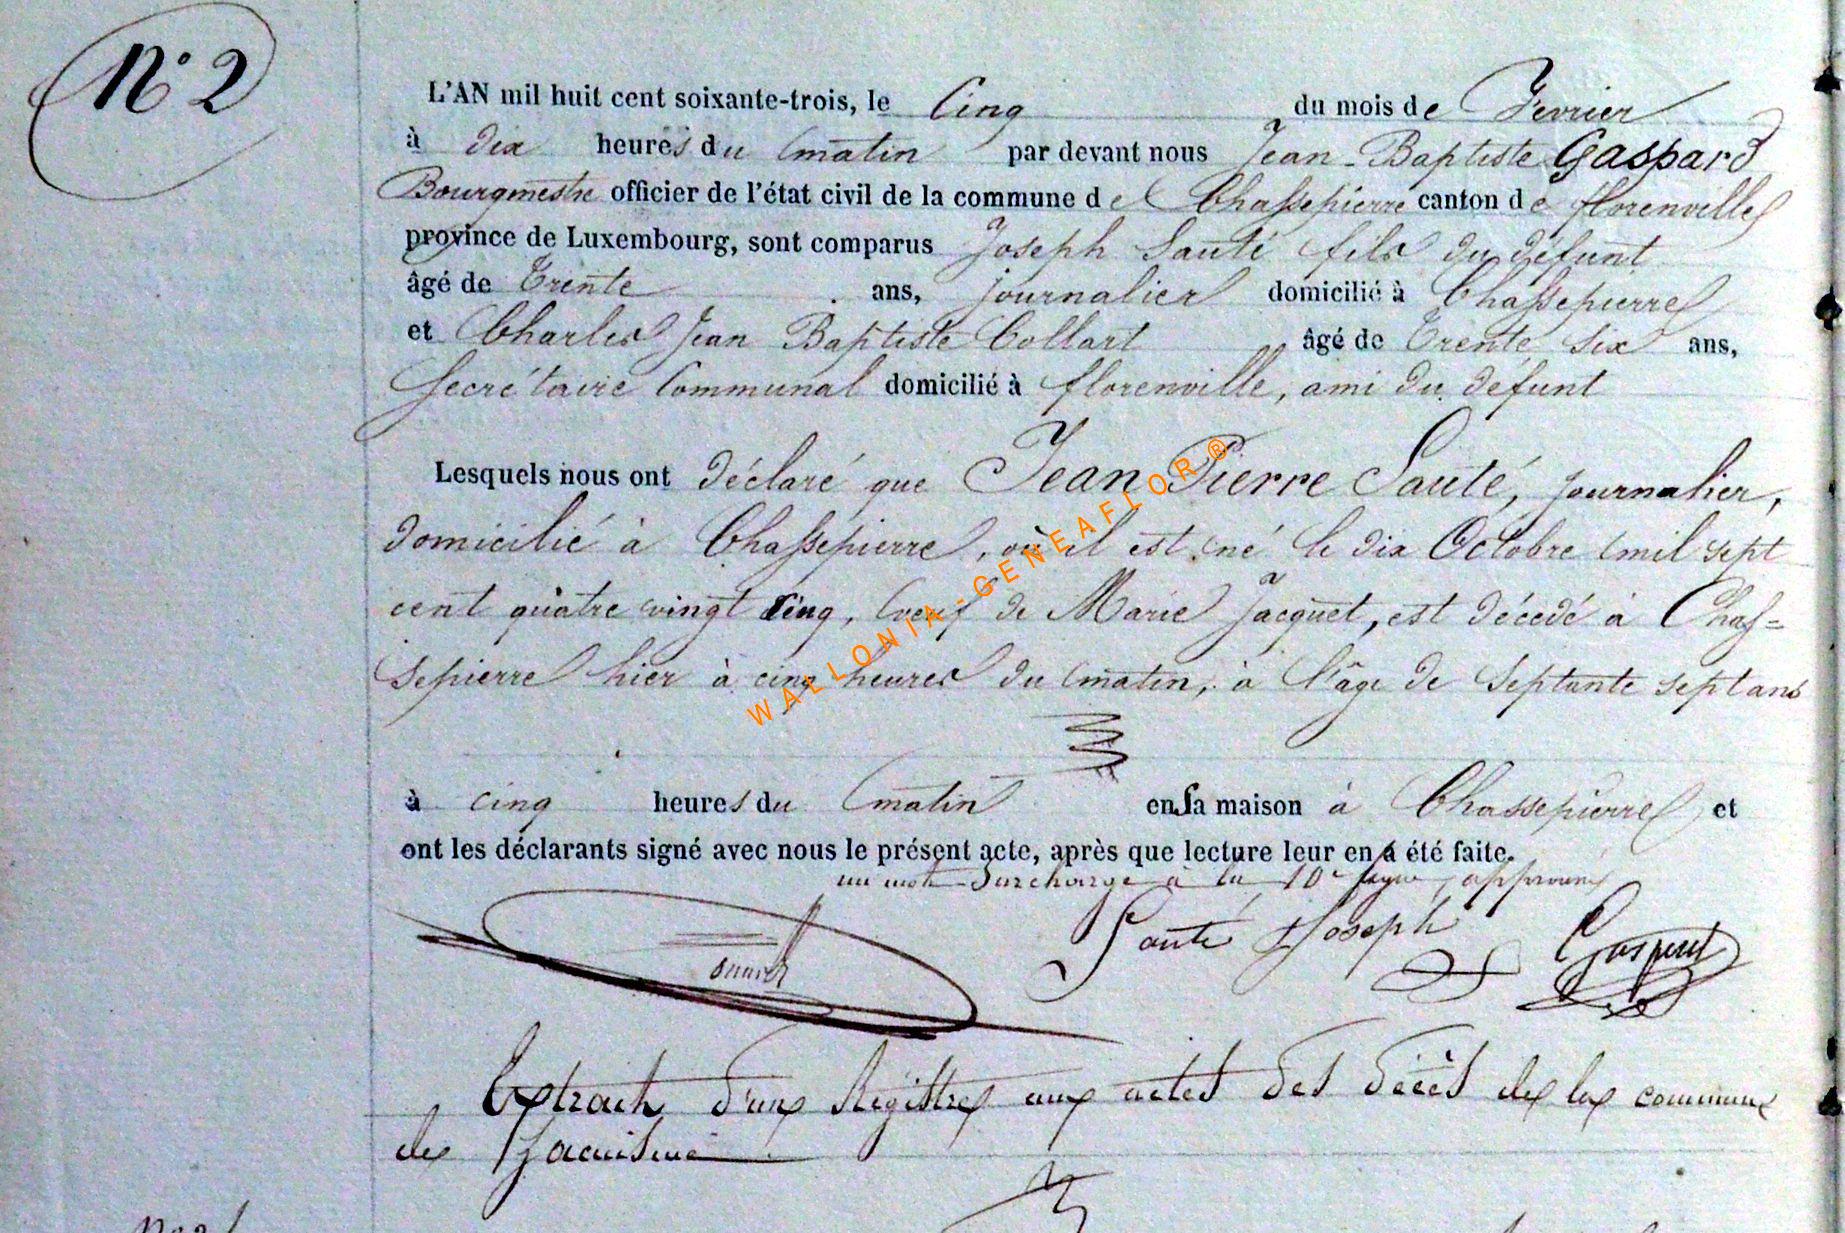 N° 2
L'AN mil huit cent soixante-trois, le Cinq du mois de Fevrier
à dix heures du matin par devant nous Jean-Baptiste Gaspard
Bourgmestre officier de l'état civil de la commune de Chassepierre canton de florenville
province de Luxembourg, sont comparus Joseph Sauté fils du défunt
âgé de Trente ans, journalier domicilié à Chassepierre
et Charles Jean Baptiste Collart âgé de Trente six ans,
Secrétaire Communal domicilié à florenville, ami du défunt
Lesquels nous ont déclaré que Jean Pierre Sauté, journalier,
domicilié à Chassepierre, où il est né le dix Octobre mil sept
cent quatre vingt cinq, veuf de Marie Jacquet, est décedé à Chas=
sepierre hier à cinq heures du matin, à l'âge de Septante sept ans
WALLONIA-GENEAFLOR®
à cinq heures du matin en sa maison à Chassepierre et
ont les déclarants signé avec nous le présent acte, après que lecture leur en a été faite.
un mot surchargé à la 10e ligne, approuvé
Sauté Joseph Gaspard
Extrait d'un Régistre aux actes des décès de la commune
de